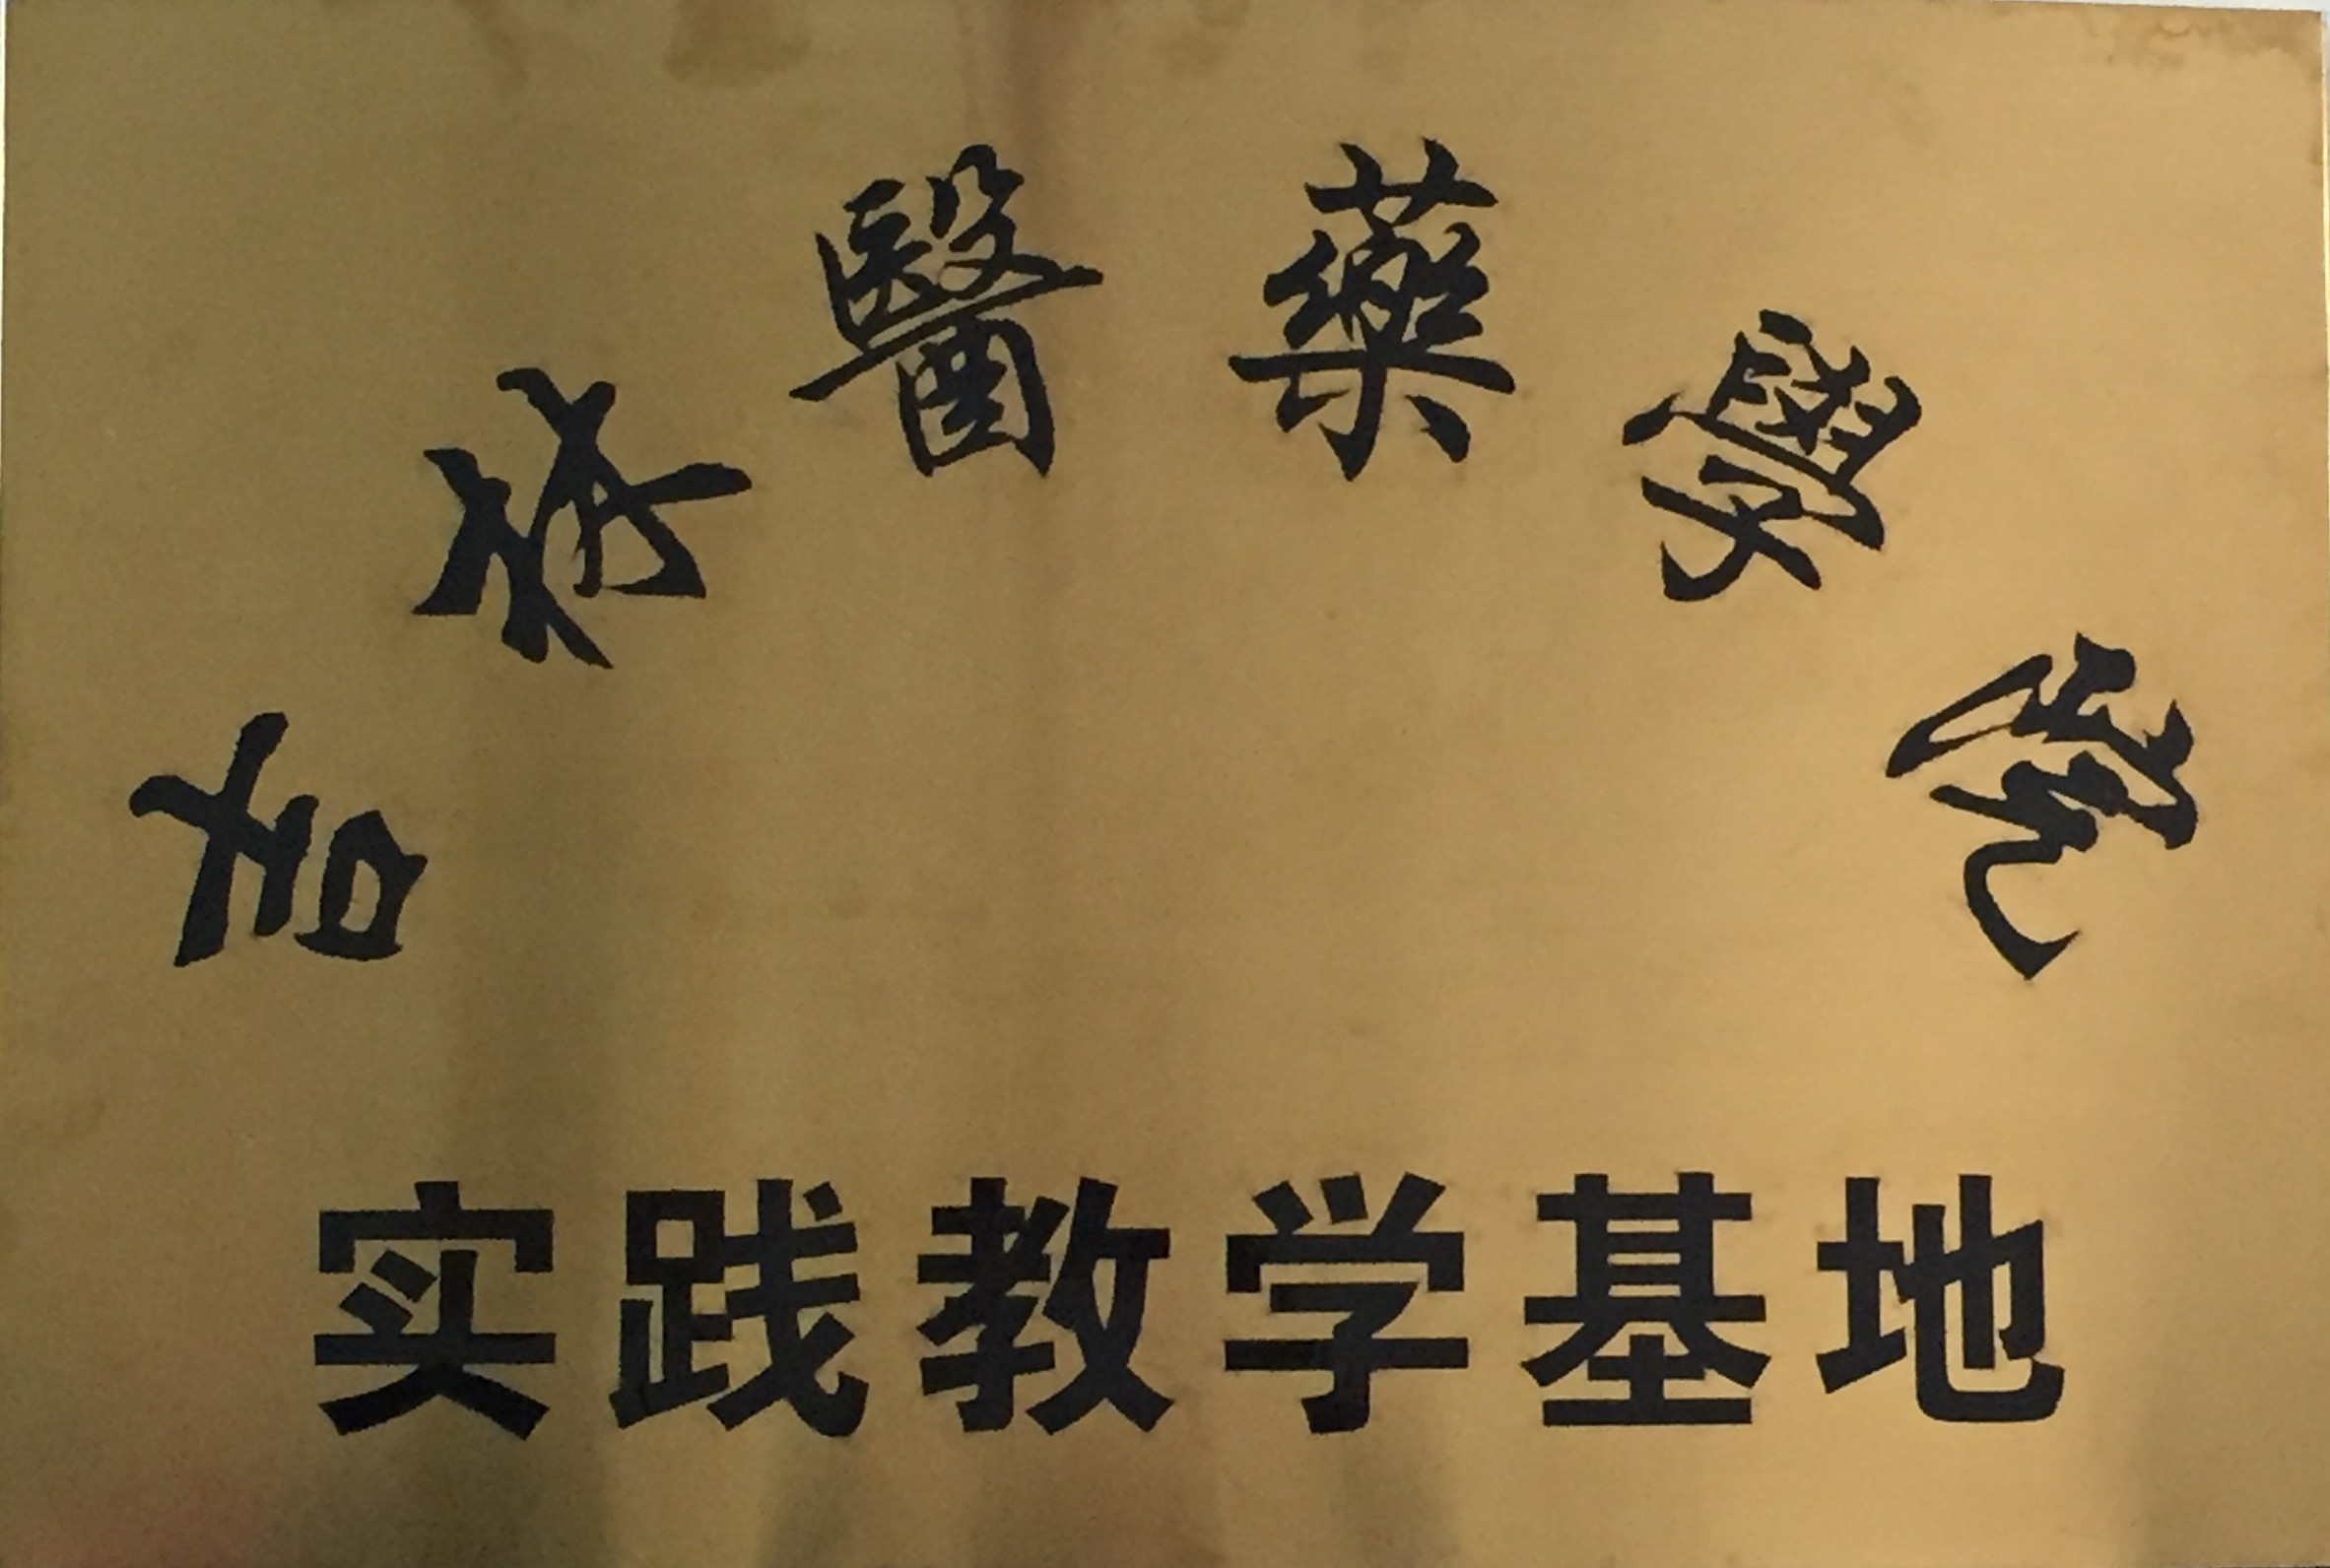 吉林醫藥學院
实践教学基地